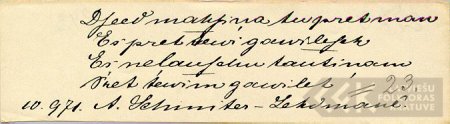 Dseed mahsiņa tu pret man
Es pret tewi gawilefch
Es nelaufchu tautinam
Pret tewim gawilet # 23
10.971. A. Schmiter-Lehmane